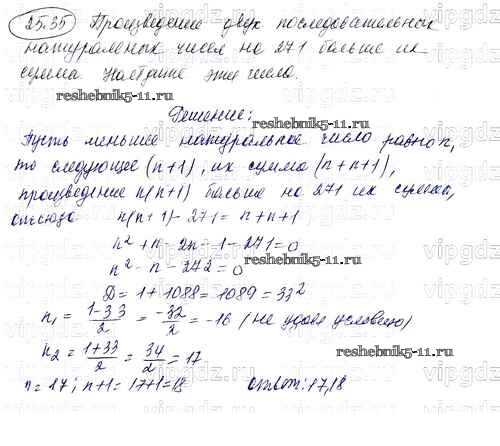 25.35 Произведение двух последовательных
натуральных чисел на 271 больше их
суммы. Найдите эти числа.
reshebnik5-11.ru
reshebnik5-11.ru
Решение:
Пусть меньшее натуральное число равно n,
то следующее (n+1), их сумма (n+n+1),
произведение n(n+1) больше на 271 их суммы,
отсюда n(n+1)-271 = n+n+1
n²+n-2n-1-271=0
n²-n-272=0
reshebnik5-11.ru
D=1+1088=1089=33²
n₁ = (1-33)/2 = -32/2 = -16 (не удовл условию)
n₂ = (1+33)/2 = 34/2 = 17
reshebnik5-11.ru
n=17; n+1=17+1=18 ответ: 17,18